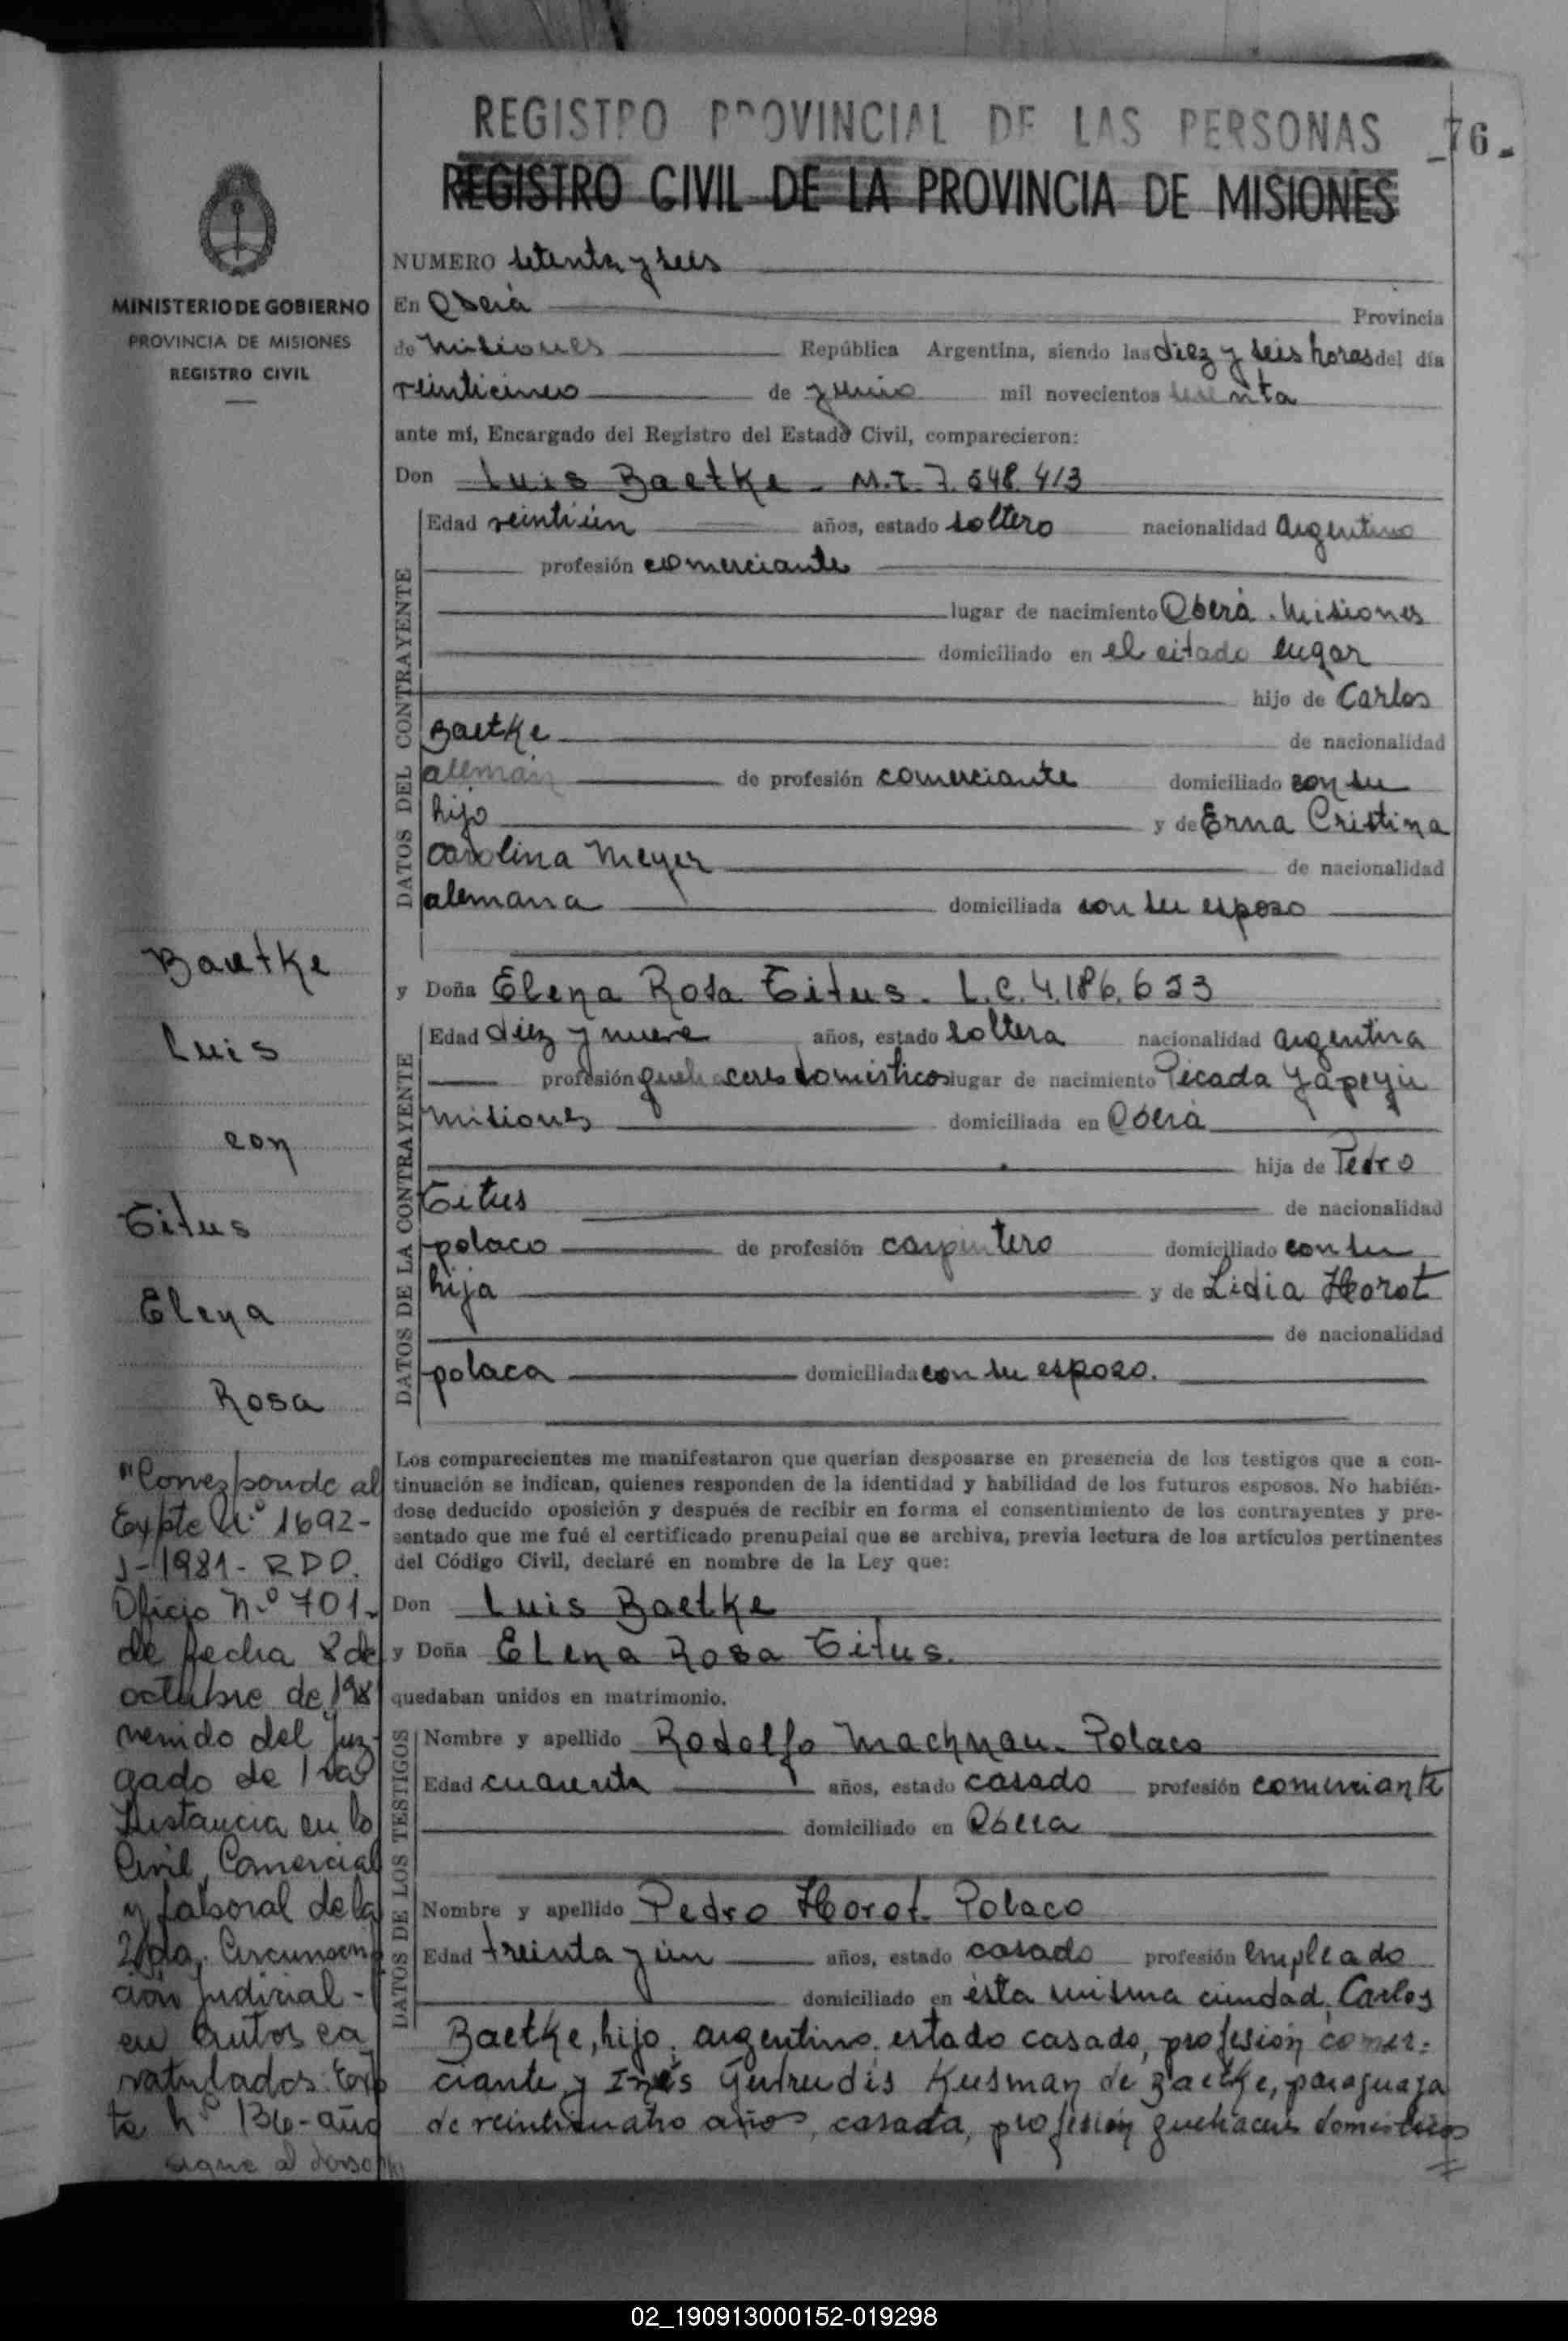 REGISTRO PROVINCIAL DE LAS PERSONAS
76
REGISTRO CIVIL DE LA PROVINCIA DE MISIONES
MINISTERIO DE GOBIERNO
PROVINCIA DE MISIONES
REGISTRO CIVIL
NUMERO setenta y seis
En Oberá Provincia
de Misiones República Argentina, siendo las diez y seis horas del día
veinticinco de junio mil novecientos sesenta
ante mí, Encargado del Registro del Estado Civil, comparecieron:
Don Luis Baetke - M.I. 7.548.413
DATOS DEL CONTRAYENTE
Edad veintiún años, estado soltero nacionalidad argentino
profesión comerciante
lugar de nacimiento Oberá. Misiones
domiciliado en el citado lugar
hijo de Carlos
Baetke de nacionalidad
alemán de profesión comerciante domiciliado con su
hijo y de Erna Cristina
Carolina Meyer de nacionalidad
alemana domiciliada con su esposo
y Doña Elena Rosa Titus. L.C. 4.186.623
DATOS DE LA CONTRAYENTE
Edad diez y nueve años, estado soltera nacionalidad argentina
profesión quehaceres domésticos lugar de nacimiento Picada Yapeyú
Misiones domiciliada en Oberá
hija de Pedro
Titus de nacionalidad
polaco de profesión carpintero domiciliado con su
hija y de Lidia Horot
de nacionalidad
polaca domiciliada con su esposo.
Los comparecientes me manifestaron que querían desposarse en presencia de los testigos que a con-
tinuación se indican, quienes responden de la identidad y habilidad de los futuros esposos. No habién-
dose deducido oposición y después de recibir en forma el consentimiento de los contrayentes y pre-
sentado que me fué el certificado prenupcial que se archiva, previa lectura de los artículos pertinentes
del Código Civil, declaré en nombre de la Ley que:
Don Luis Baetke
y Doña Elena Rosa Titus.
quedaban unidos en matrimonio.
DATOS DE LOS TESTIGOS
Nombre y apellido Rodolfo Polaco
Edad cuarenta años, estado casado profesión comerciante
domiciliado en Oberá
Nombre y apellido Pedro Horot. Polaco
Edad treinta y un años, estado casado profesión empleado
domiciliado en ésta misma ciudad, Carlos
Baetke, hijo, argentino, estado casado, profesión comer-
ciante y Inés Gertrudis Kusman de Baetke, paraguaya
de veinticuatro años, casada, profesión quehaceres domésticos
Baetke
Luis
con
Titus
Elena
Rosa
"Corresponde al
Expte N.º 1692-
J-1981- RDO.
Oficio N.º 701-
de fecha 8 de
octubre de 198
venido del Juz-
gado de 1ra
Instancia en lo
Civil, Comercial
y Laboral de la
2da. Circunscrip
ción Judicial-
en autos ca
ratulados: Exp
te Nº 136-año
sigue al dorso
02_190913000152-019298